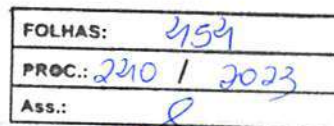 FOLHAS: 454
PROC.: 240 / 2023
Ass.: